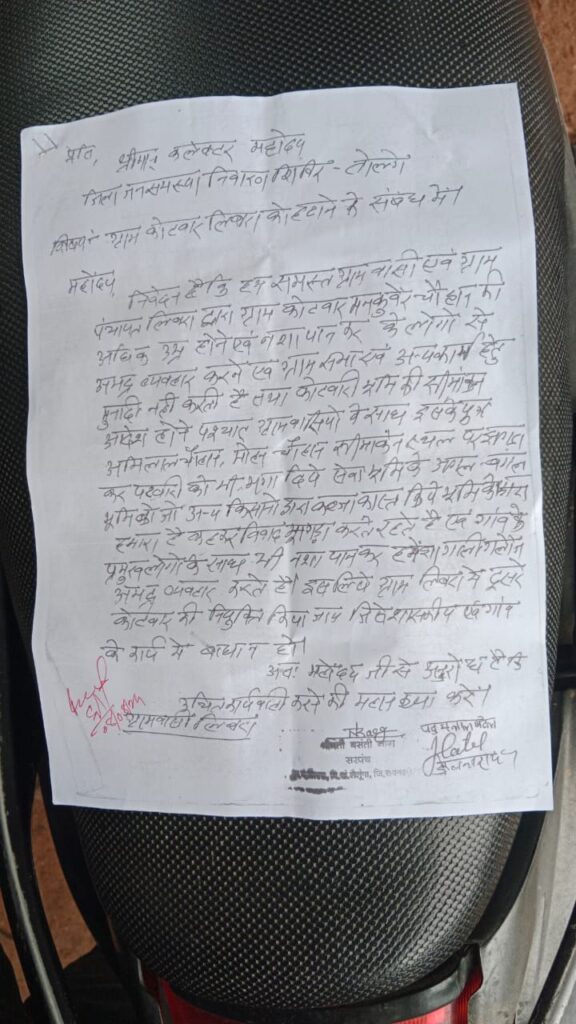 प्रति, श्रीमान् कलेक्टर महोदय
जिला जनसमस्या निवारण शिविर - तोलगे
विषय:- ग्राम कोटवार लिबरा को हटाने के संबंध में।
महोदय
निवेदन है कि हम समस्त ग्राम वासी एवं ग्राम
पंचायत लिबरा द्वारा ग्राम कोटवार मनकुंवर चौहान की
अधिक उम्र होने एवं नशा पान कर के लोगो से
अभद्र व्यवहार करने एवं ग्राम सभा एवं अन्य कार्य हेतु
मुनादी नही करती है तथा कोटवारी भूमि की सीमांकन
आदेश होने पश्चात ग्रामवासियो के साथ इसके पुत्र
अमिलाल चौहान, मोहन चौहान सीमांकन स्थल पर झगड़ा
कर पटवारी को भी भगा दिये सेवा भूमि के अगल-बगल
भूमि को जो अन्य किसानो द्वारा कब्जा कास्त किये भूमि को
हमारा है कहकर विवाद झगड़ा करते रहते है एवं गांव के
प्रमुख लोगो के साथ भी नशा पान कर हमेशा गाली गलौज
अभद्र व्यवहार करते है। इस लिये ग्राम लिबरा मे दूसरे
कोटवार की नियुक्ति किया जाय जिससे शासकीय एवं गांव
के कार्य मे बाधा न हो।
अतः महोदय जी से अनुरोध है कि
उचित कार्यवाही करने की महान कृपा करें।
ग्रामवासी लिबरा
श्रीमती बसंती बाग
सरपंच